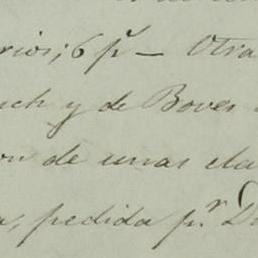 rios; 6 pº — Otra
uch y de Boves
on de unas cla
a, pedida p.r D